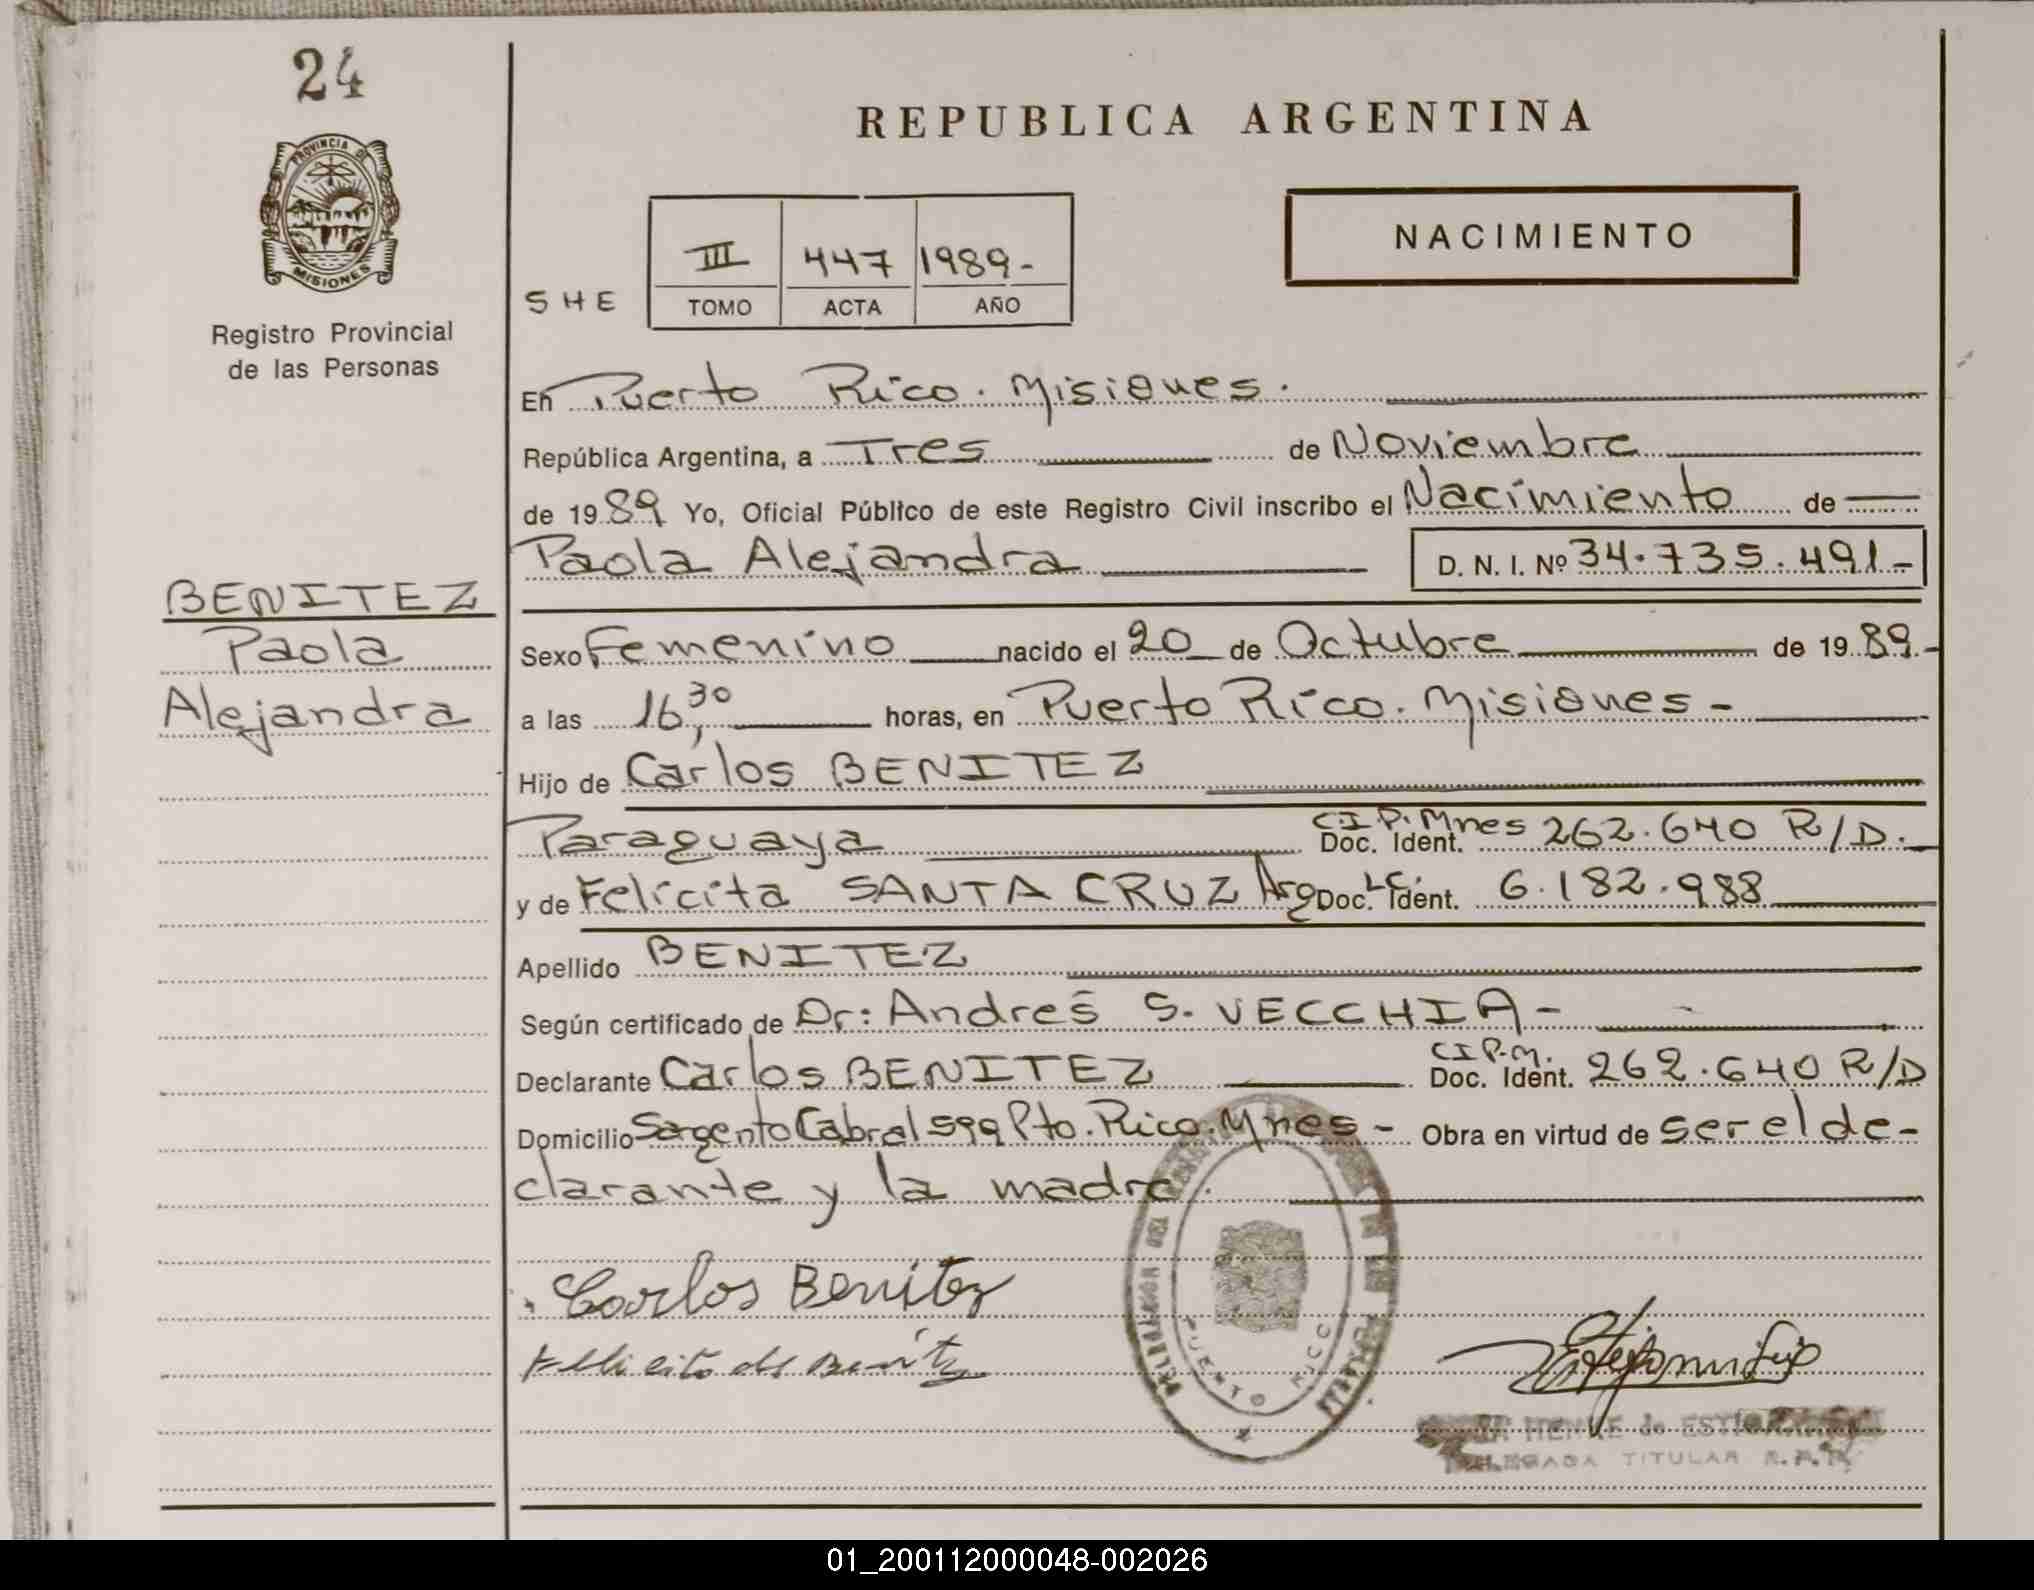 24
PROVINCIA DE
MISIONES
Registro Provincial
de las Personas
REPUBLICA ARGENTINA
NACIMIENTO
SHE
III 447 1989-
TOMO ACTA AÑO
En Puerto Rico. Misiones.
República Argentina, a Tres de Noviembre
de 1989 Yo, Oficial Público de este Registro Civil inscribo el Nacimiento de
Paola Alejandra D. N. I. Nº 34.735.491-
BENITEZ
Paola
Alejandra
Sexo Femenino nacido el 20 de Octubre de 1989-
a las 16,30 horas, en Puerto Rico. Misiones-
Hijo de Carlos BENITEZ
Paraguaya C.I.P.Mnes Doc. Ident. 262.640 R/D.
y de Felicita SANTA CRUZ Arg L.C. Doc. Ident. 6.182.988
Apellido BENITEZ
Según certificado de Dr: Andres S. VECCHIA-
Declarante Carlos BENITEZ C.I.P.M. Doc. Ident. 262.640 R/D
Domicilio Sargento Cabral 599 Pto. Rico. Mnes- Obra en virtud de ser el de-
clarante y la madre.
Carlos Benitez
PUERTO RICO
HENKE de
DELEGADA TITULAR R.P.P.
01_200112000048-002026